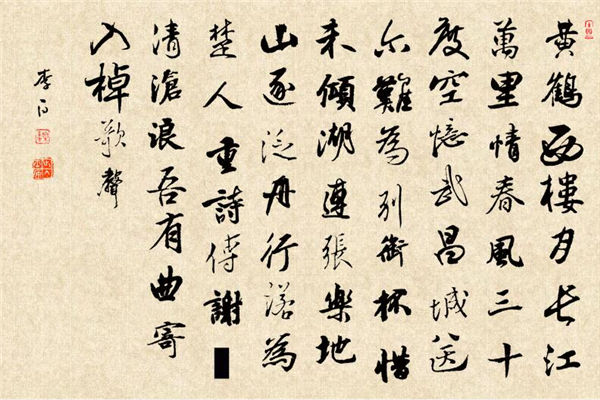 黄鶴西樓月長江
萬里情春風三十
度空憶武昌城送
尔難為別銜杯惜
未傾湖連張樂地
山逐泛舟行諾為
楚人重詩傳謝
清滄浪吾有曲寄
入棹歌聲
李白